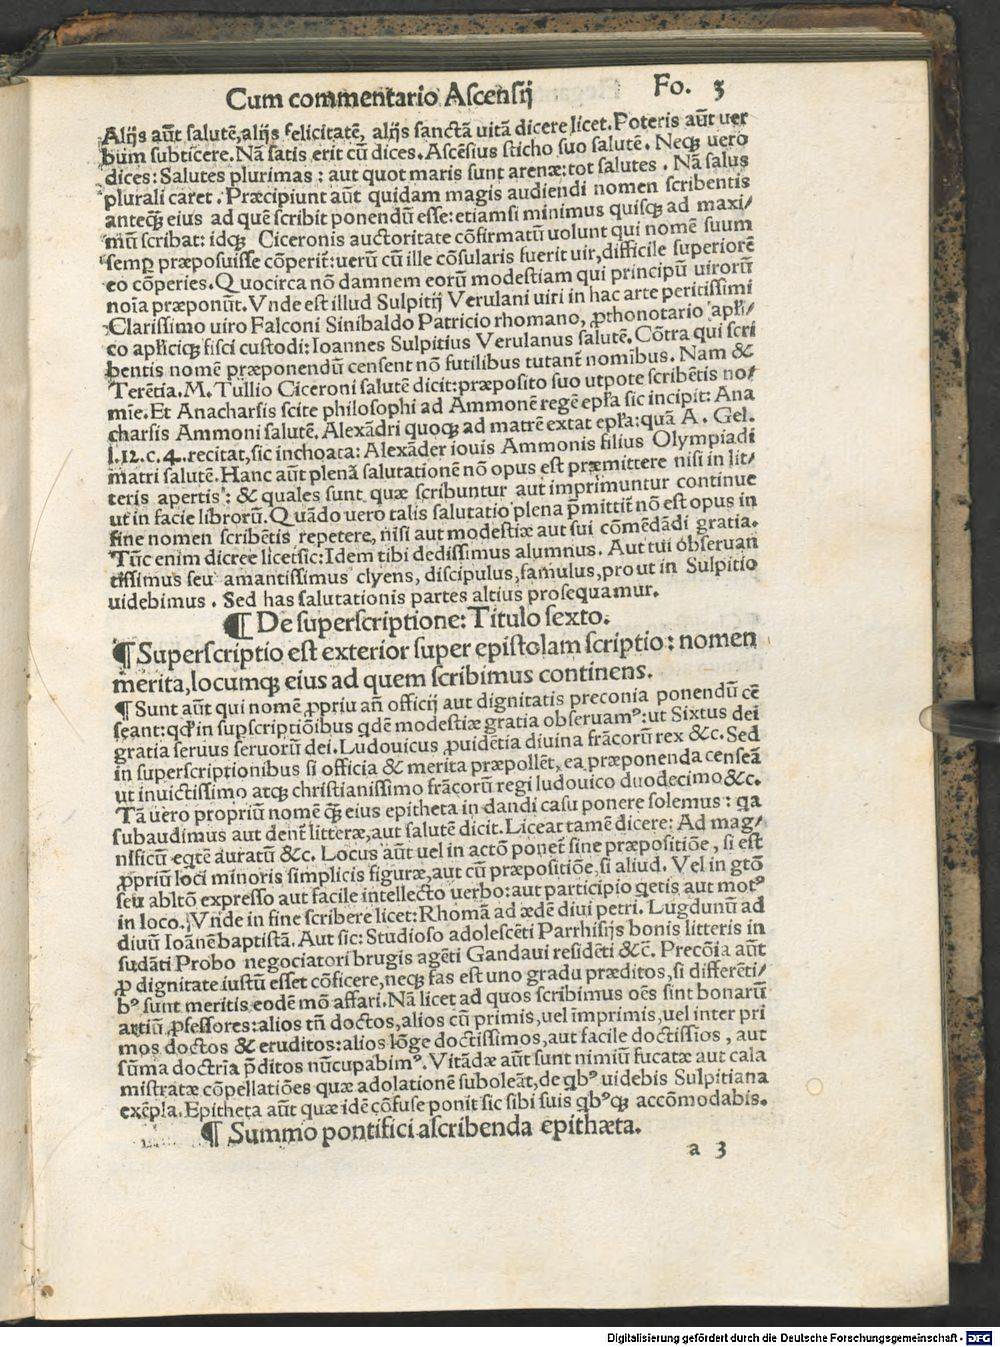 Cum commentario Ascensij Fo. 3
Alijs aūt salutē,alijs felicitatē, alijs sanctā uitā dicere licet.Poteris aūt uer
bum subticere.Nā satis erit cū dices.Ascēsius sticho suo salutē. Neqꝫ uero
dices:Salutes plurimas: aut quot maris sunt arenæ:tot salutes. Nā salus
plurali caret.Præcipiunt aūt quidam magis audiendi nomen scribentis
anteqꝫ̄ eius ad quē scribit ponendū esse:etiamsi minimus quisqꝫ ad maxi/
mū scribat: idqꝫ Ciceronis auctoritate cōfirmatū uolunt qui nomē suum
semꝑ præposuisse cōperit̄:uerū cū ille cōsularis fuerit uir,difficile superiorē
eo cōperies.Quocirca nō damnem eorū modestiam qui principū uirorū
noīa præponūt.Vnde est illud Sulpitij Verulani uiri in hac arte peritissimi
Clarissimo uiro Falconi Sinibaldo Patricio rhomano, ꝓthonotario apl̄i/
co apl̄iciqꝫ fisci custodi:Ioannes Sulpitius Verulanus salutē.Cōtra qui scri
bentis nomē præponendū censent nō futilibus tutant̄ nomībus. Nam &
Terētia.M. Tullio Ciceroni salutē dicit:præposito suo utpote scribētis no/
mīe.Et Anacharsis scite philosophi ad Ammonē regē epl̄a sic incipit: Ana
charsis Ammoni salutē.Alexādri quoqꝫ ad matrē extat epl̄a:quā A. Gel.
l.12.c.4.recitat,sic inchoata: Alexāder iouis Ammonis filius Olympiadi
matri salutē.Hanc aūt plenā salutationē nō opus est præmittere nisi in lit/
teris apertis: & quales sunt quæ scribuntur aut imprimuntur continue
ut in facie librorū.Quādo uero talis salutatio plena p̄mittit̄ nō est opus in
fine nomen scribētis repetere,nisi aut modestiæ aut sui cōmēdādi gratia.
Tūc enim dicere licet sic:Idem tibi deditissimus alumnus. Aut tui obseruan
tissimus seu amantissimus clyens, discipulus,famulus,prout in Sulpitio
uidebimus. Sed has salutationis partes altius prosequamur.
¶ De superscriptione:Titulo sexto.
¶ Superscriptio est exterior super epistolam scriptio: nomen
merita,locumqꝫ eius ad quem scribimus continens.
¶ Sunt aūt qui nomē ꝓpriu an̄ officij aut dignitatis preconia ponendū cē
seant:qd̓ in sup̄scriptiōibus qdē modestiæ gratia obseruamꝰ:ut Sixtus dei
gratia seruus seruorū dei.Ludouicus ꝓuidētia diuina frācorū rex &c.Sed
in superscriptionibus si officia & merita præpollēt,ea præponenda censeā
ut inuictissimo atqꝫ christianissimo frācorū regi ludouico duodecimo &c.
Tā uero propriū nomē qꝫ̄ eius epitheta in dandi casu ponere solemus: qa
subaudimus aut dent̄ litteræ,aut salutē dicit.Liceat tamē dicere: Ad mag/
nificū eqtē auratū &c. Locus aūt uel in actō ponet̄ sine præpositiōe, si est
ꝓpriū loci minoris simplicis figuræ,aut cū præpositiōe,si aliud. Vel in gtō
seu abltō expresso aut facile intellecto uerbo:aut participio qetis aut motꝰ
in loco.Vnde in fine scribere licet:Rhomā ad ædē diui petri. Lugdunū ad
diuū Ioānē baptistā. Aut sic:Studioso adolescēti Parrhisijs bonis litteris in
sudāti Probo negociatori brugis agēti Gandaui residēti &c̄. Precōia aūt
ꝓ dignitate iustū esset cōficere,neqꝫ fas est uno gradu præditos,si differēti/
bꝰ sunt meritis eodē mō affari.Nā licet ad quos scribimus oēs sint bonarū
artiū ꝓfessores:alios tn̄ doctos,alios cū primis,uel imprimis,uel inter pri
mos doctos & eruditos:alios lōge doctissimos,aut facile doctissīos, aut
sūma doctrīa p̄ditos nūcupabimꝰ.Vitādæ aūt sunt nimiū fucatæ aut cala
mistratæ cōpellatiōes quæ adolationē suboleāt,de qbꝰ uidebis Sulpitiana
exēpla.Epitheta aūt quæ idē cōfuse ponit sic sibi suis qbꝰqꝫ accōmodabis.
¶ Summo pontifici ascribenda epithæta.
a 3
Digitalisierung gefördert durch die Deutsche Forschungsgemeinschaft - DFG